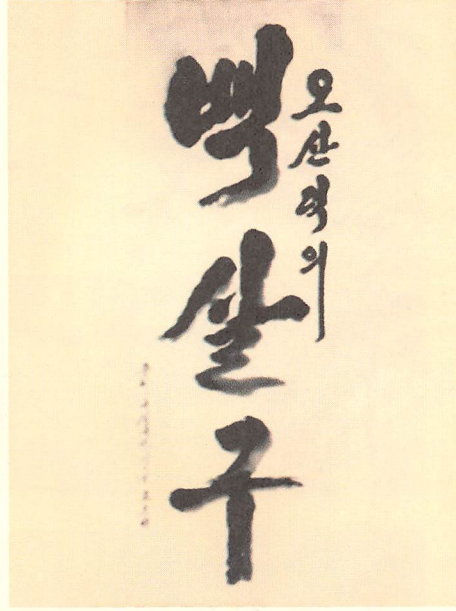 오산덕의
백살구